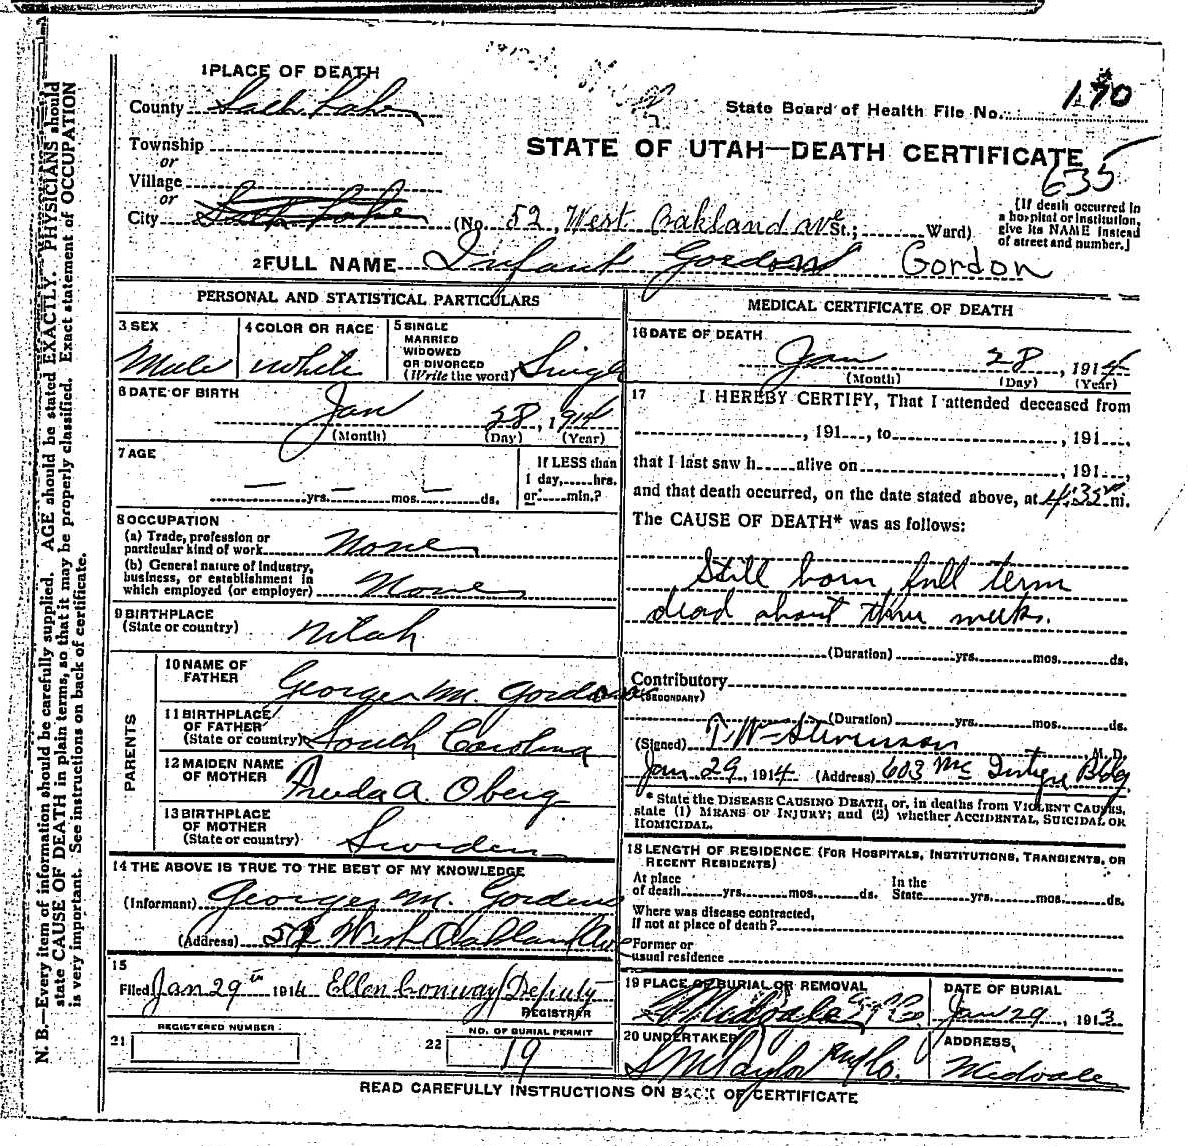 1 PLACE OF DEATH
County Salt Lake
State Board of Health File No. 170
Township
or
Village
or
STATE OF UTAH—DEATH CERTIFICATE
635
City Salt Lake (No. 52, West Oakland Ave St.; Ward)
[If death occurred in
a hospital or institution,
give its NAME instead
of street and number.]
2 FULL NAME Infant Gordon Gordon
PERSONAL AND STATISTICAL PARTICULARS
3 SEX
Male
4 COLOR OR RACE
White
5 SINGLE
MARRIED
WIDOWED
OR DIVORCED
(Write the word) Single
6 DATE OF BIRTH
Jan 28, 1914
(Month) (Day) (Year)
7 AGE
— yrs. — mos. — ds.
If LESS than
1 day, hrs.
or min.?
8 OCCUPATION
(a) Trade, profession or
particular kind of work None
(b) General nature of industry,
business, or establishment in
which employed (or employer) None
9 BIRTHPLACE
(State or country) Utah
PARENTS
10 NAME OF
FATHER George M. Gordon
11 BIRTHPLACE
OF FATHER
(State or country) South Carolina
12 MAIDEN NAME
OF MOTHER Freda A. Oberg
13 BIRTHPLACE
OF MOTHER
(State or country) Sweden
14 THE ABOVE IS TRUE TO THE BEST OF MY KNOWLEDGE
(Informant) George M. Gordon
(Address) 52 West Oakland Ave
15
Filed Jan 29th 1914 Ellen Conway/Deputy
REGISTRAR
REGISTERED NUMBER
21
NO. OF BURIAL PERMIT
22 19
MEDICAL CERTIFICATE OF DEATH
16 DATE OF DEATH
Jan 28, 1914
(Month) (Day) (Year)
17 I HEREBY CERTIFY, That I attended deceased from
, 191 , to , 191 ,
that I last saw h alive on , 191 ,
and that death occurred, on the date stated above, at 4:35 m.
The CAUSE OF DEATH* was as follows:
Still born full term
dead about three weeks.
(Duration) yrs. mos. ds.
Contributory
(SECONDARY)
(Duration) yrs. mos. ds.
(Signed) T. W. Stevenson M. D.
Jan 29, 1914 (Address) 603 Mc Intyre Bldg
* State the DISEASE CAUSING DEATH, or, in deaths from VIOLENT CAUSES,
state (1) MEANS OF INJURY; and (2) whether ACCIDENTAL, SUICIDAL OR
HOMICIDAL.
18 LENGTH OF RESIDENCE (FOR HOSPITALS, INSTITUTIONS, TRANSIENTS, OR
RECENT RESIDENTS)
At place
of death yrs. mos. ds.
In the
State yrs. mos. ds.
Where was disease contracted,
if not at place of death?
Former or
usual residence
19 PLACE OF BURIAL OR REMOVAL
Midvale
DATE OF BURIAL
Jan 29, 1913
20 UNDERTAKER
S M Taylor Co.
ADDRESS,
Midvale
READ CAREFULLY INSTRUCTIONS ON BACK OF CERTIFICATE
N. B.—Every item of information should be carefully supplied. AGE should be stated EXACTLY. PHYSICIANS should
state CAUSE OF DEATH in plain terms, so that it may be properly classified. Exact statement of OCCUPATION
is very important. See instructions on back of certificate.